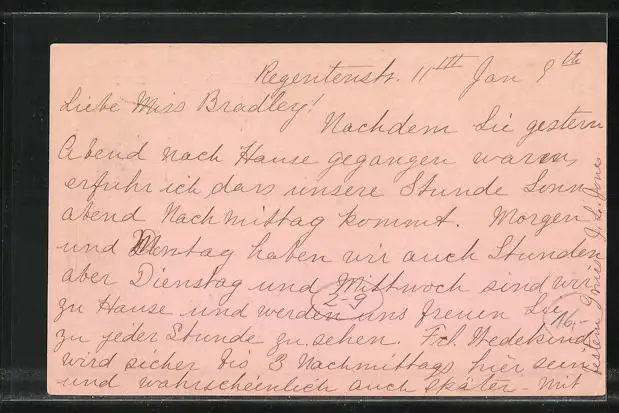 Regentenstr. 11III Jan 9th
Liebe Miss Bradley!
Nachdem Sie gestern
Abend nach Hause gegangen waren,
erfuhr ich, dass unsere Stunde Sonn
abend Nachmittag kommt. Morgen
und Montag haben wir auch Stunden
aber Dienstag und Mittwoch sind wir
zu Hause und werden uns freuen Sie
2-9
16,-
zu jeder Stunde zu sehen. Frl. Wedekind
wird sicher bis 3 Nachmittags hier sein
und wahrscheenlich auch später - Mit
bestem Gruss J. L. Jones